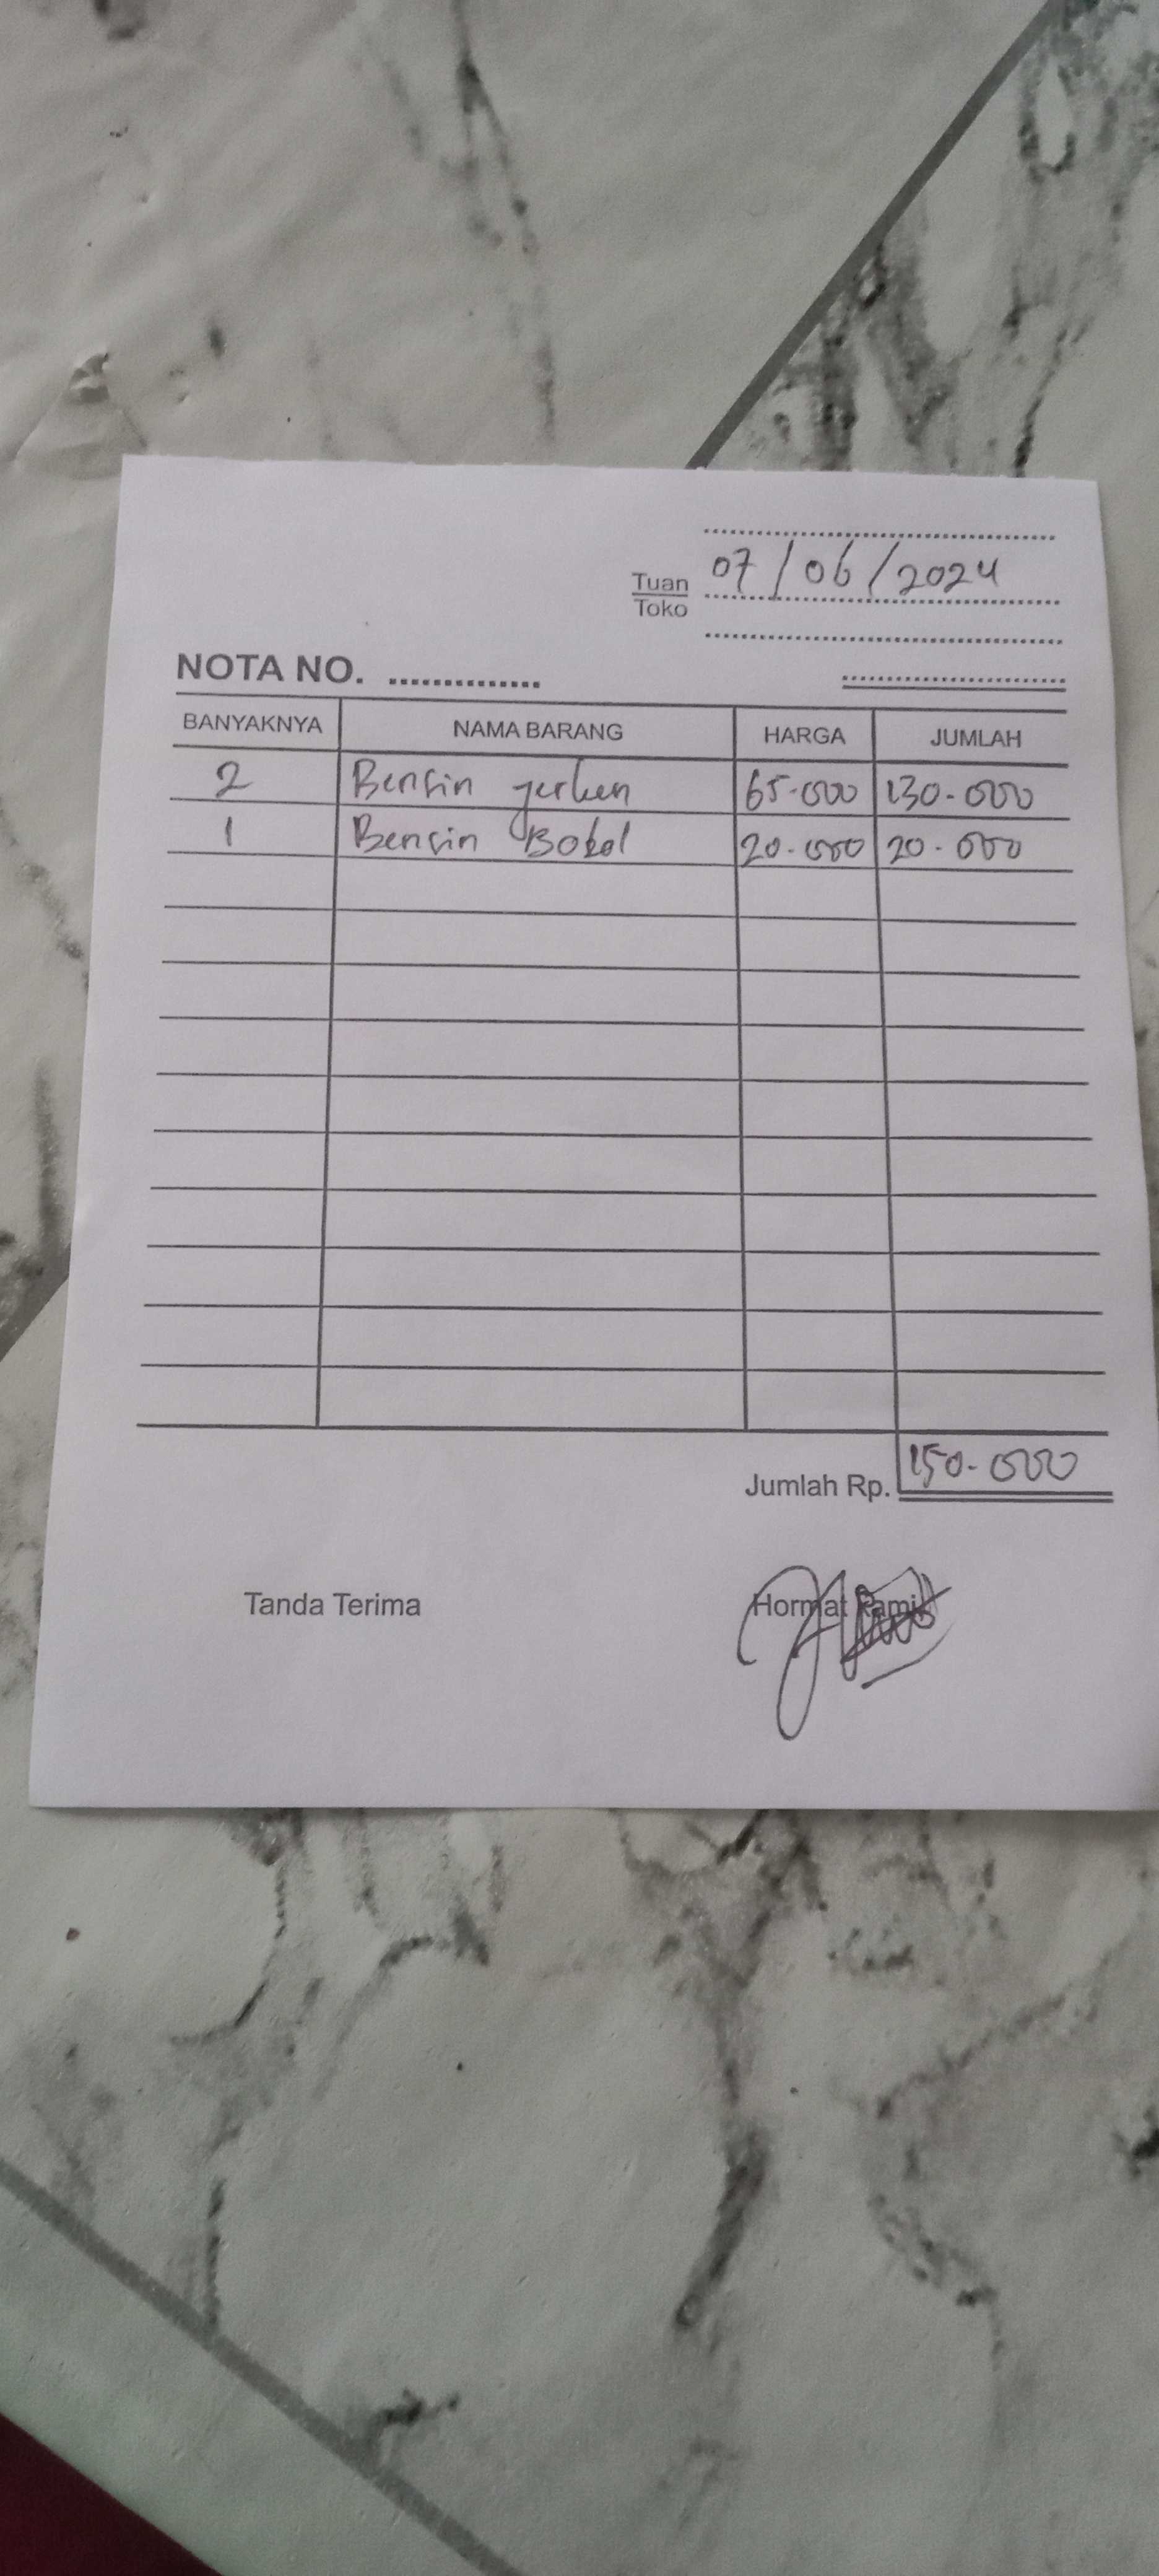 07/06/2024
Tuan
Toko
NOTA NO. ..............
BANYAKNYA NAMA BARANG HARGA JUMLAH
2 Bensin jerken 65.000 130.000
1 Bensin Botol 20.000 20.000
Jumlah Rp. 150.000
Tanda Terima Hormat Kami